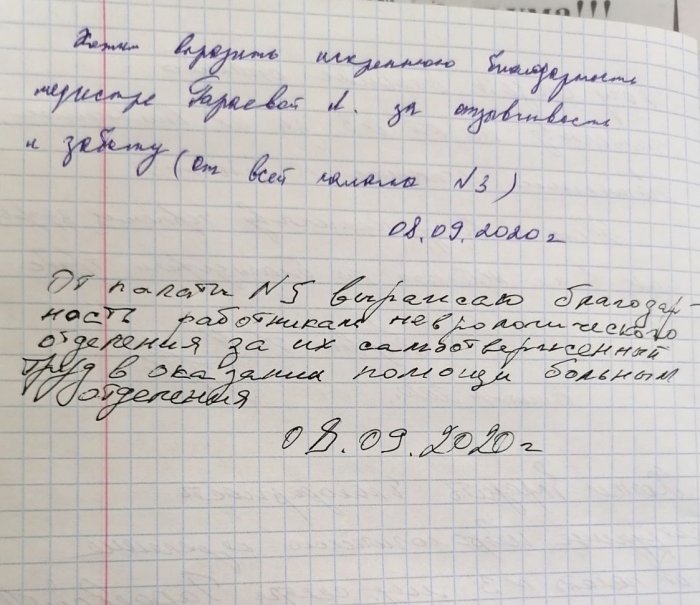 Хотим выразить искреннюю благодарность
медсестре Гараевой А. за отзывчивость
и заботу (от всей палаты №3)
08.09.2020г
От палаты №5 выражаю благодар-
ность работникам неврологического
отделения за их самоотверженный
труд в оказании помощи больным
отделения
08.09.2020г